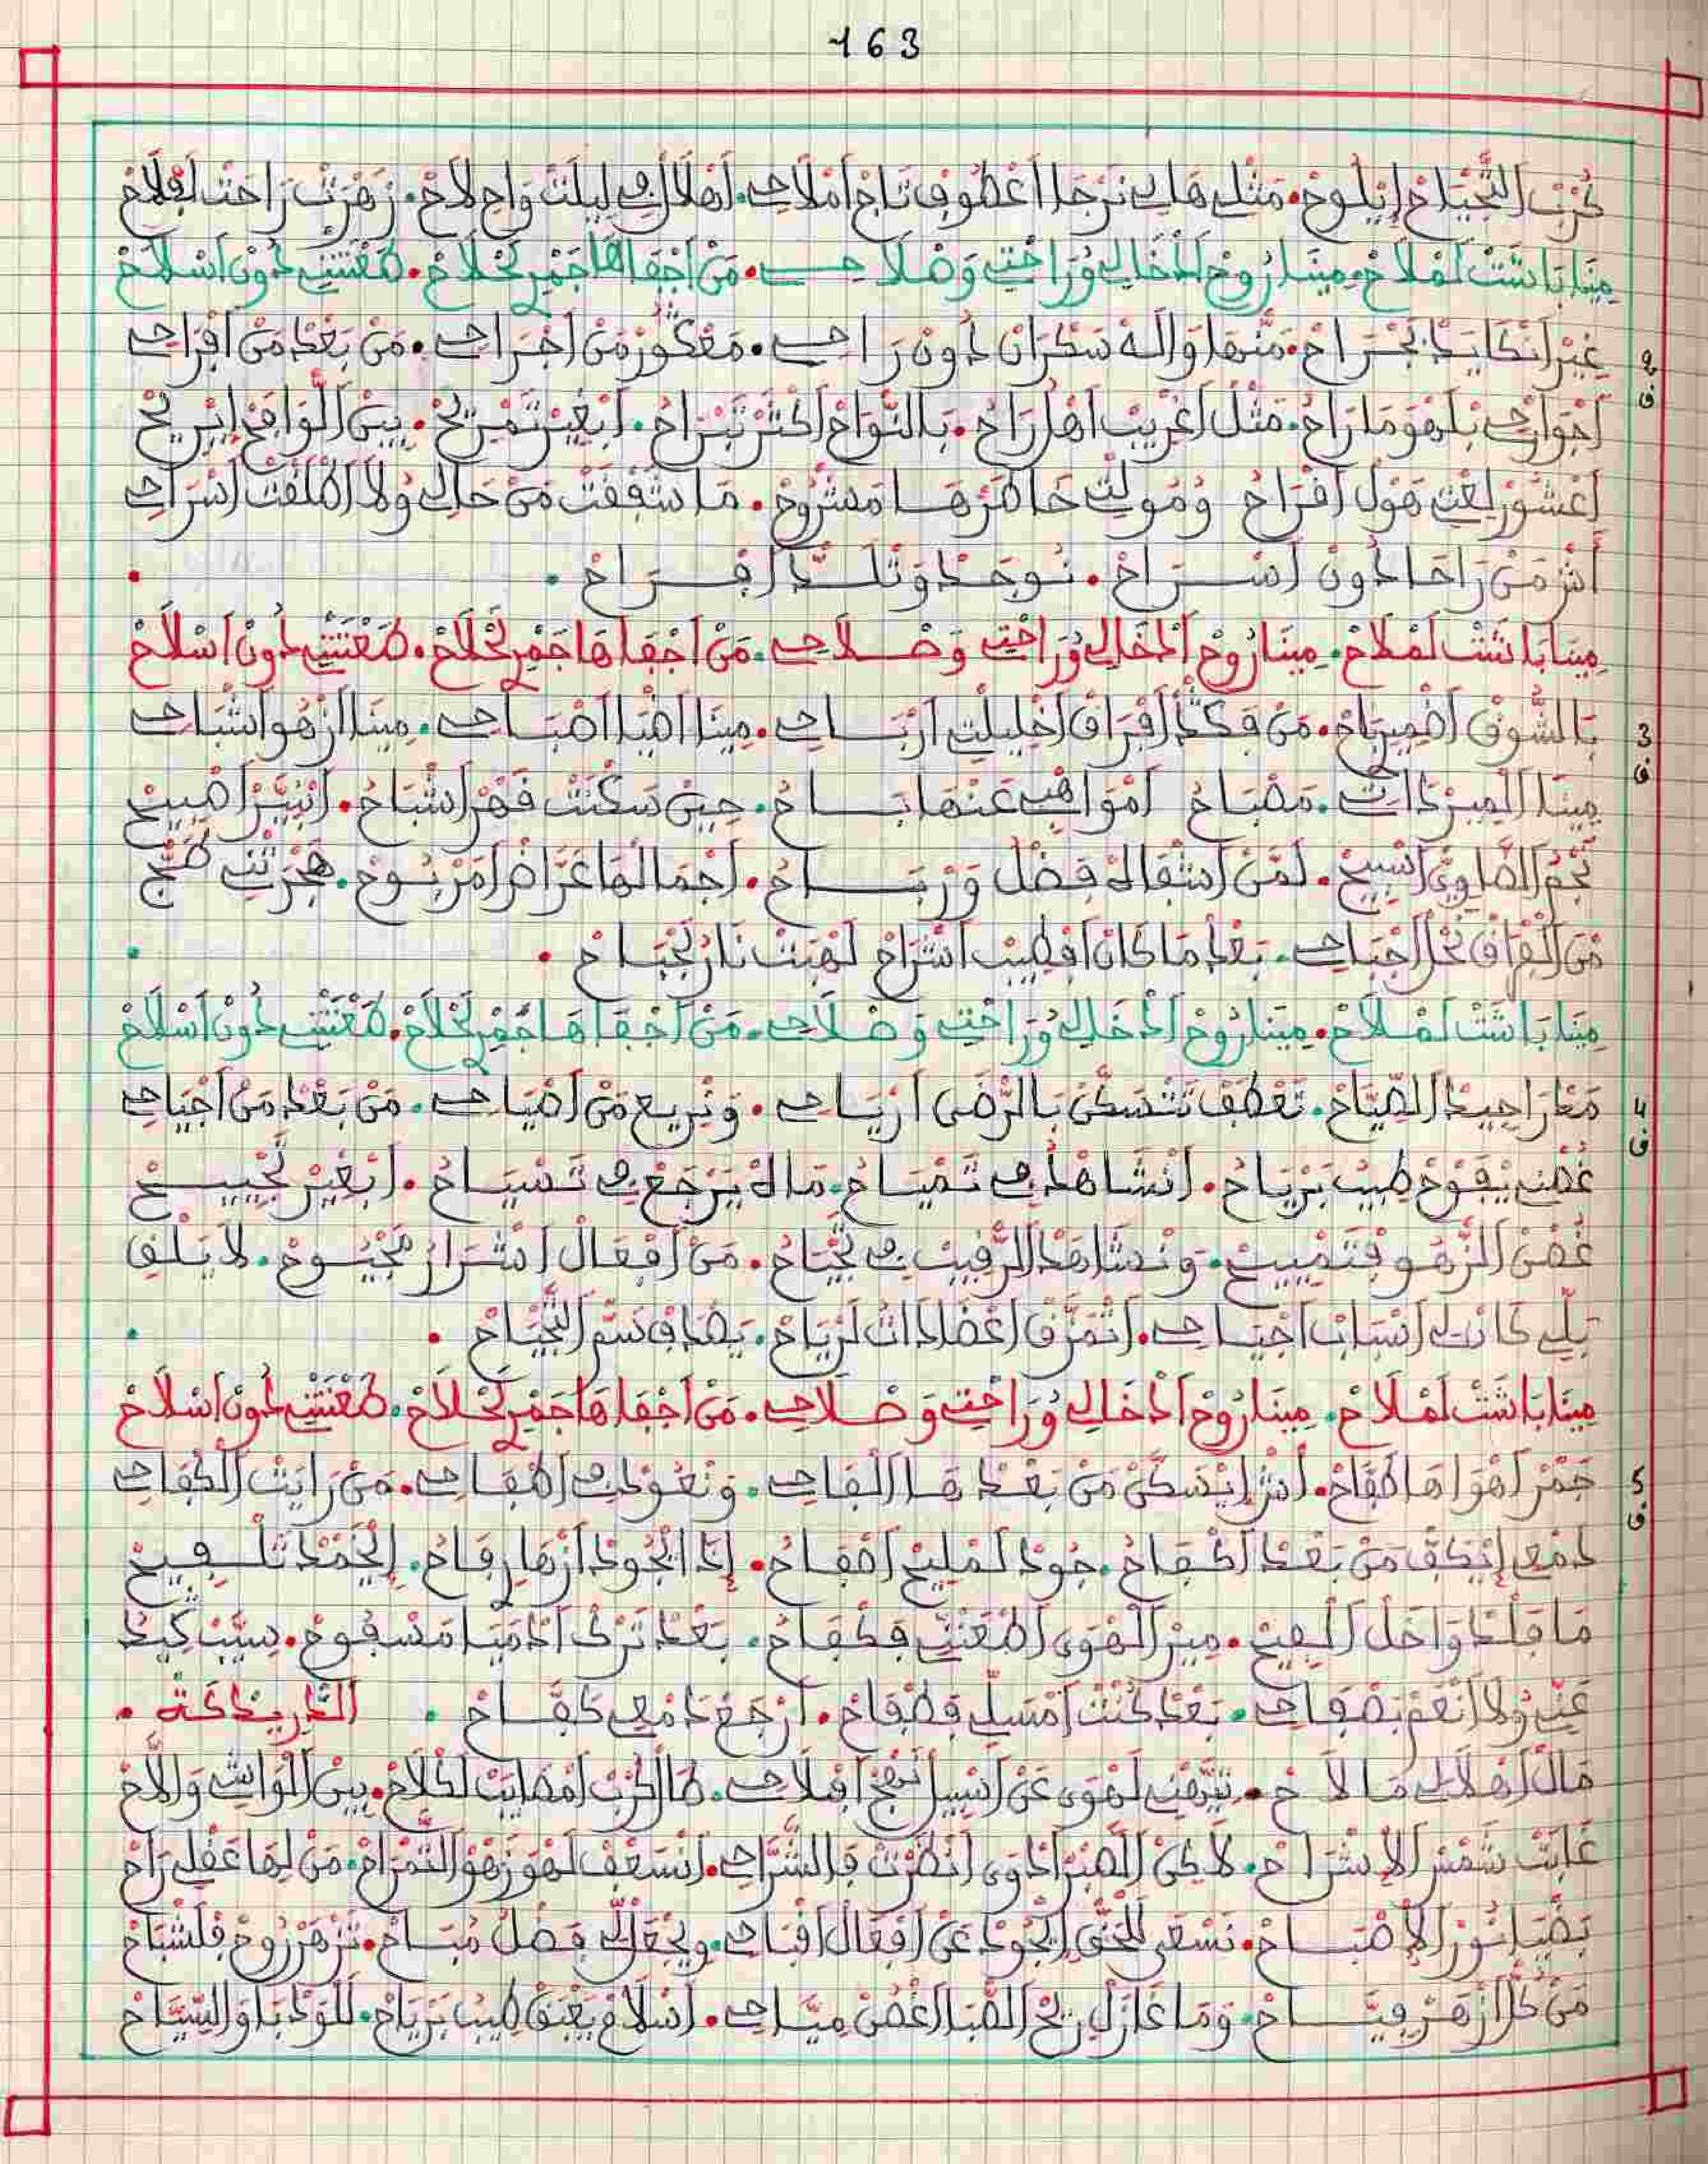 163
كرب التجياح ايلوح. مثلي هاني نرجا اعطوف تاج املاحي. اهلالي في ليلت واح لاح. زهرت راحت لفلاح
مينا باشت لملاح. مينا روح ادخالي وراحتي وصلاحي. من اجفاها جمر لحلاح. طعنتني دون اسلاح
2 غير انكابد لجراح. منها واله سكران دون راحي. معكور من اجراحي. من بعد من افراحي
ف اجوارحي بلهو ما راح. مثل اغريب اهل راح. بالنواح اكثر تبراح. ابغير تمريح. بين الوافح ابريح
اعشور لغى هول افراح ومولتي خاطرها مشروح. ما شفقت من حالي ولا اطلقت اسراحي
اش من راحا دون اسراح. نوجد ونلد افراح.
مينا باشت لملاح. مينا روح ادخالي وراحتي وصلاحي. من اجفاها جمر لحلاح. طعنتني دون اسلاح
3 بالشوق اضمير باح. من فكد افراق اخليلت ارباحي. مينا اضيا اصباحي. مينا ازهو اشباحي
ف مينا الميز ذات مصباح امواهب عنها باح. حين سكنت فهر اشباح. انبير اصبيح
نجم الضاوي اسبيح. لمن اشقاله فضل ورباح. اجمالها غراض امربوح. هجرتني طبح
من الفراق نحل اجباحي. بعد ما كان افطيب اشراح لهبت نار لجباح.
مينا باشت لملاح. مينا روح ادخالي وراحتي وصلاحي. من اجفاها جمر لحلاح. طعنتني دون اسلاح
4 معا راحيد الصياح. تعطف تتسكن بالرضى ارياحي. ونريع من اصياحي. من بعد من اجياحي
ف غصني يفوح طيب برياح. انشاهد في تمياح. ماله يرجع في تسياح. ابغير لجييح
غصن الزهو فتمييح. ونشاهد الرقيب في لجياح. من افعال اشرار مجيوح. لا يلقى
بلي كانت اسباب اجياحي. اتمزق اعضا ذات لرياح. يصداف سم التجياح.
مينا باشت لملاح. مينا روح ادخالي وراحتي وصلاحي. من اجفاها جمر لحلاح. طعنتني دون اسلاح
5 جمر اهواها طفاح. اش ايسكن من بعد ها القاحي. ونعود في اطفاحي. من رايت الكفاحي
ف دمعي ايكف من بعد اكفاح. جود لمليح افقاح. اذا الجود ازهار فاح. الحمد تلقيح
ما فلد واحل القيح. مير الهوى اطعني فكفاح. بعد ترك ادميا مسفوح. سيب كيد
عني ولا انعم بصفاحي. بعد كنت امسلي فطفاح. ارجع دمعي كفاح. الدريدكة.
مال اهلالي ما لاح. تيهني لهوى عن اسبيل نهج افلاحي. طال كرب امصايب لكلاح. بين الواشي واللاح
غابت شمس الاشراح. لاكن الصبر ادوى انضرت فالشراحي. اسعف لهو زهو التمراح. من لها عقلي راح
بضيا نور الاصباح. نسعى للحق الجود عن افعال اقباحي. ويجعلي فضل مباح. تزهر روح فلشباح
من كل ازهر فياح. وما غازل ريح الصبا اغصن مياحي. اسلام يعبق طيب برياح. للودبا والسياح